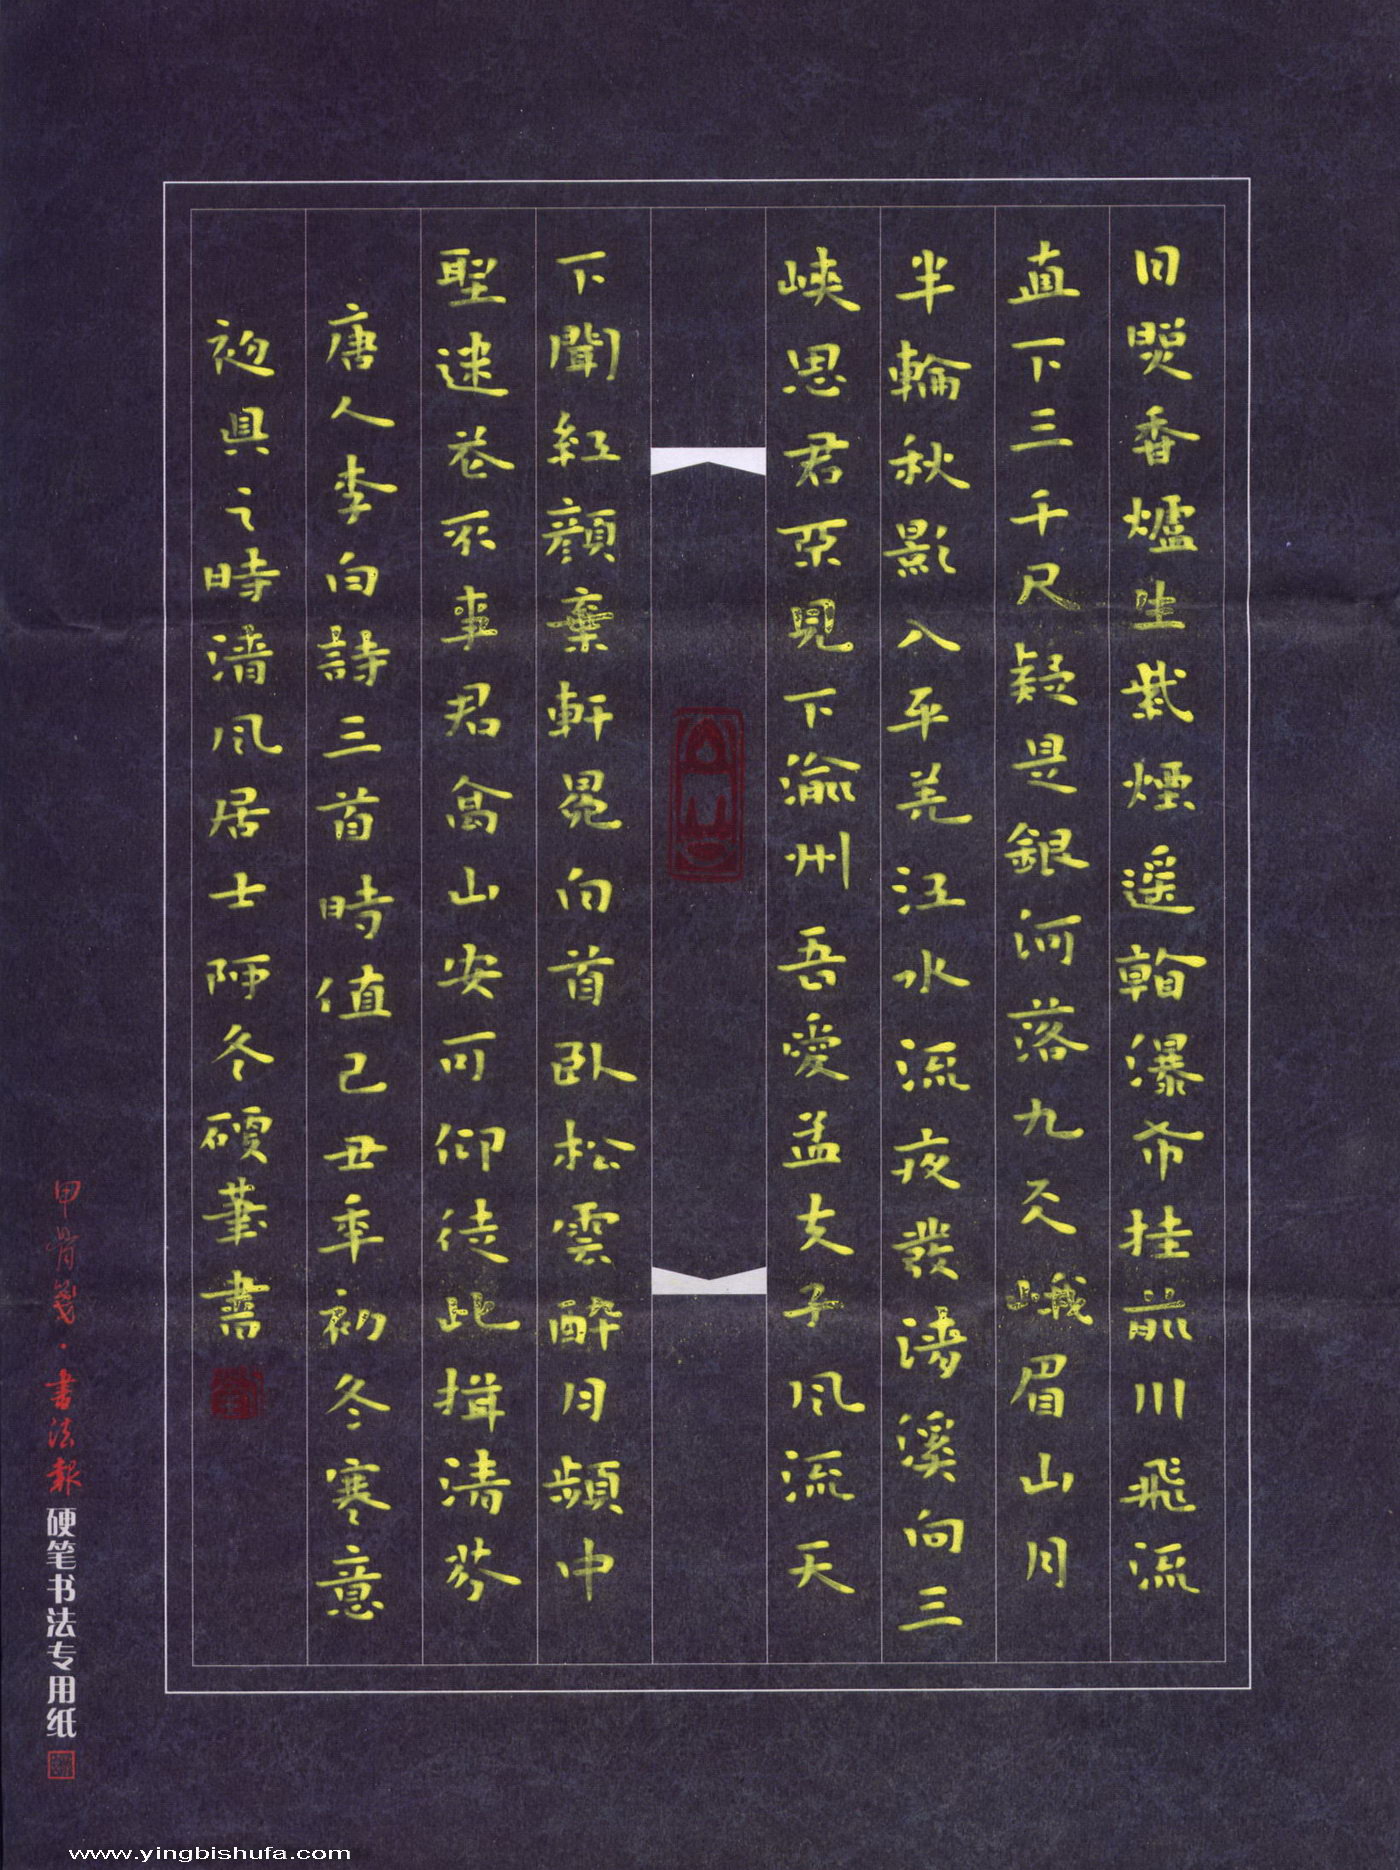 日照香爐生紫煙遥看瀑布挂前川飛流
直下三千尺疑是銀河落九天峨眉山月
半輪秋影入平羌江水流夜發清溪向三
峽思君不見下渝州吾愛孟夫子風流天
下聞紅顔棄軒冕白首卧松雲醉月頻中
聖迷花不事君高山安可仰徒此揖清芬
唐人李白詩三首時值己丑年初冬寒意
初具之時清風居士 冬硬筆書
甲骨箋·書法報硬笔书法专用纸
www.yingbishufa.com